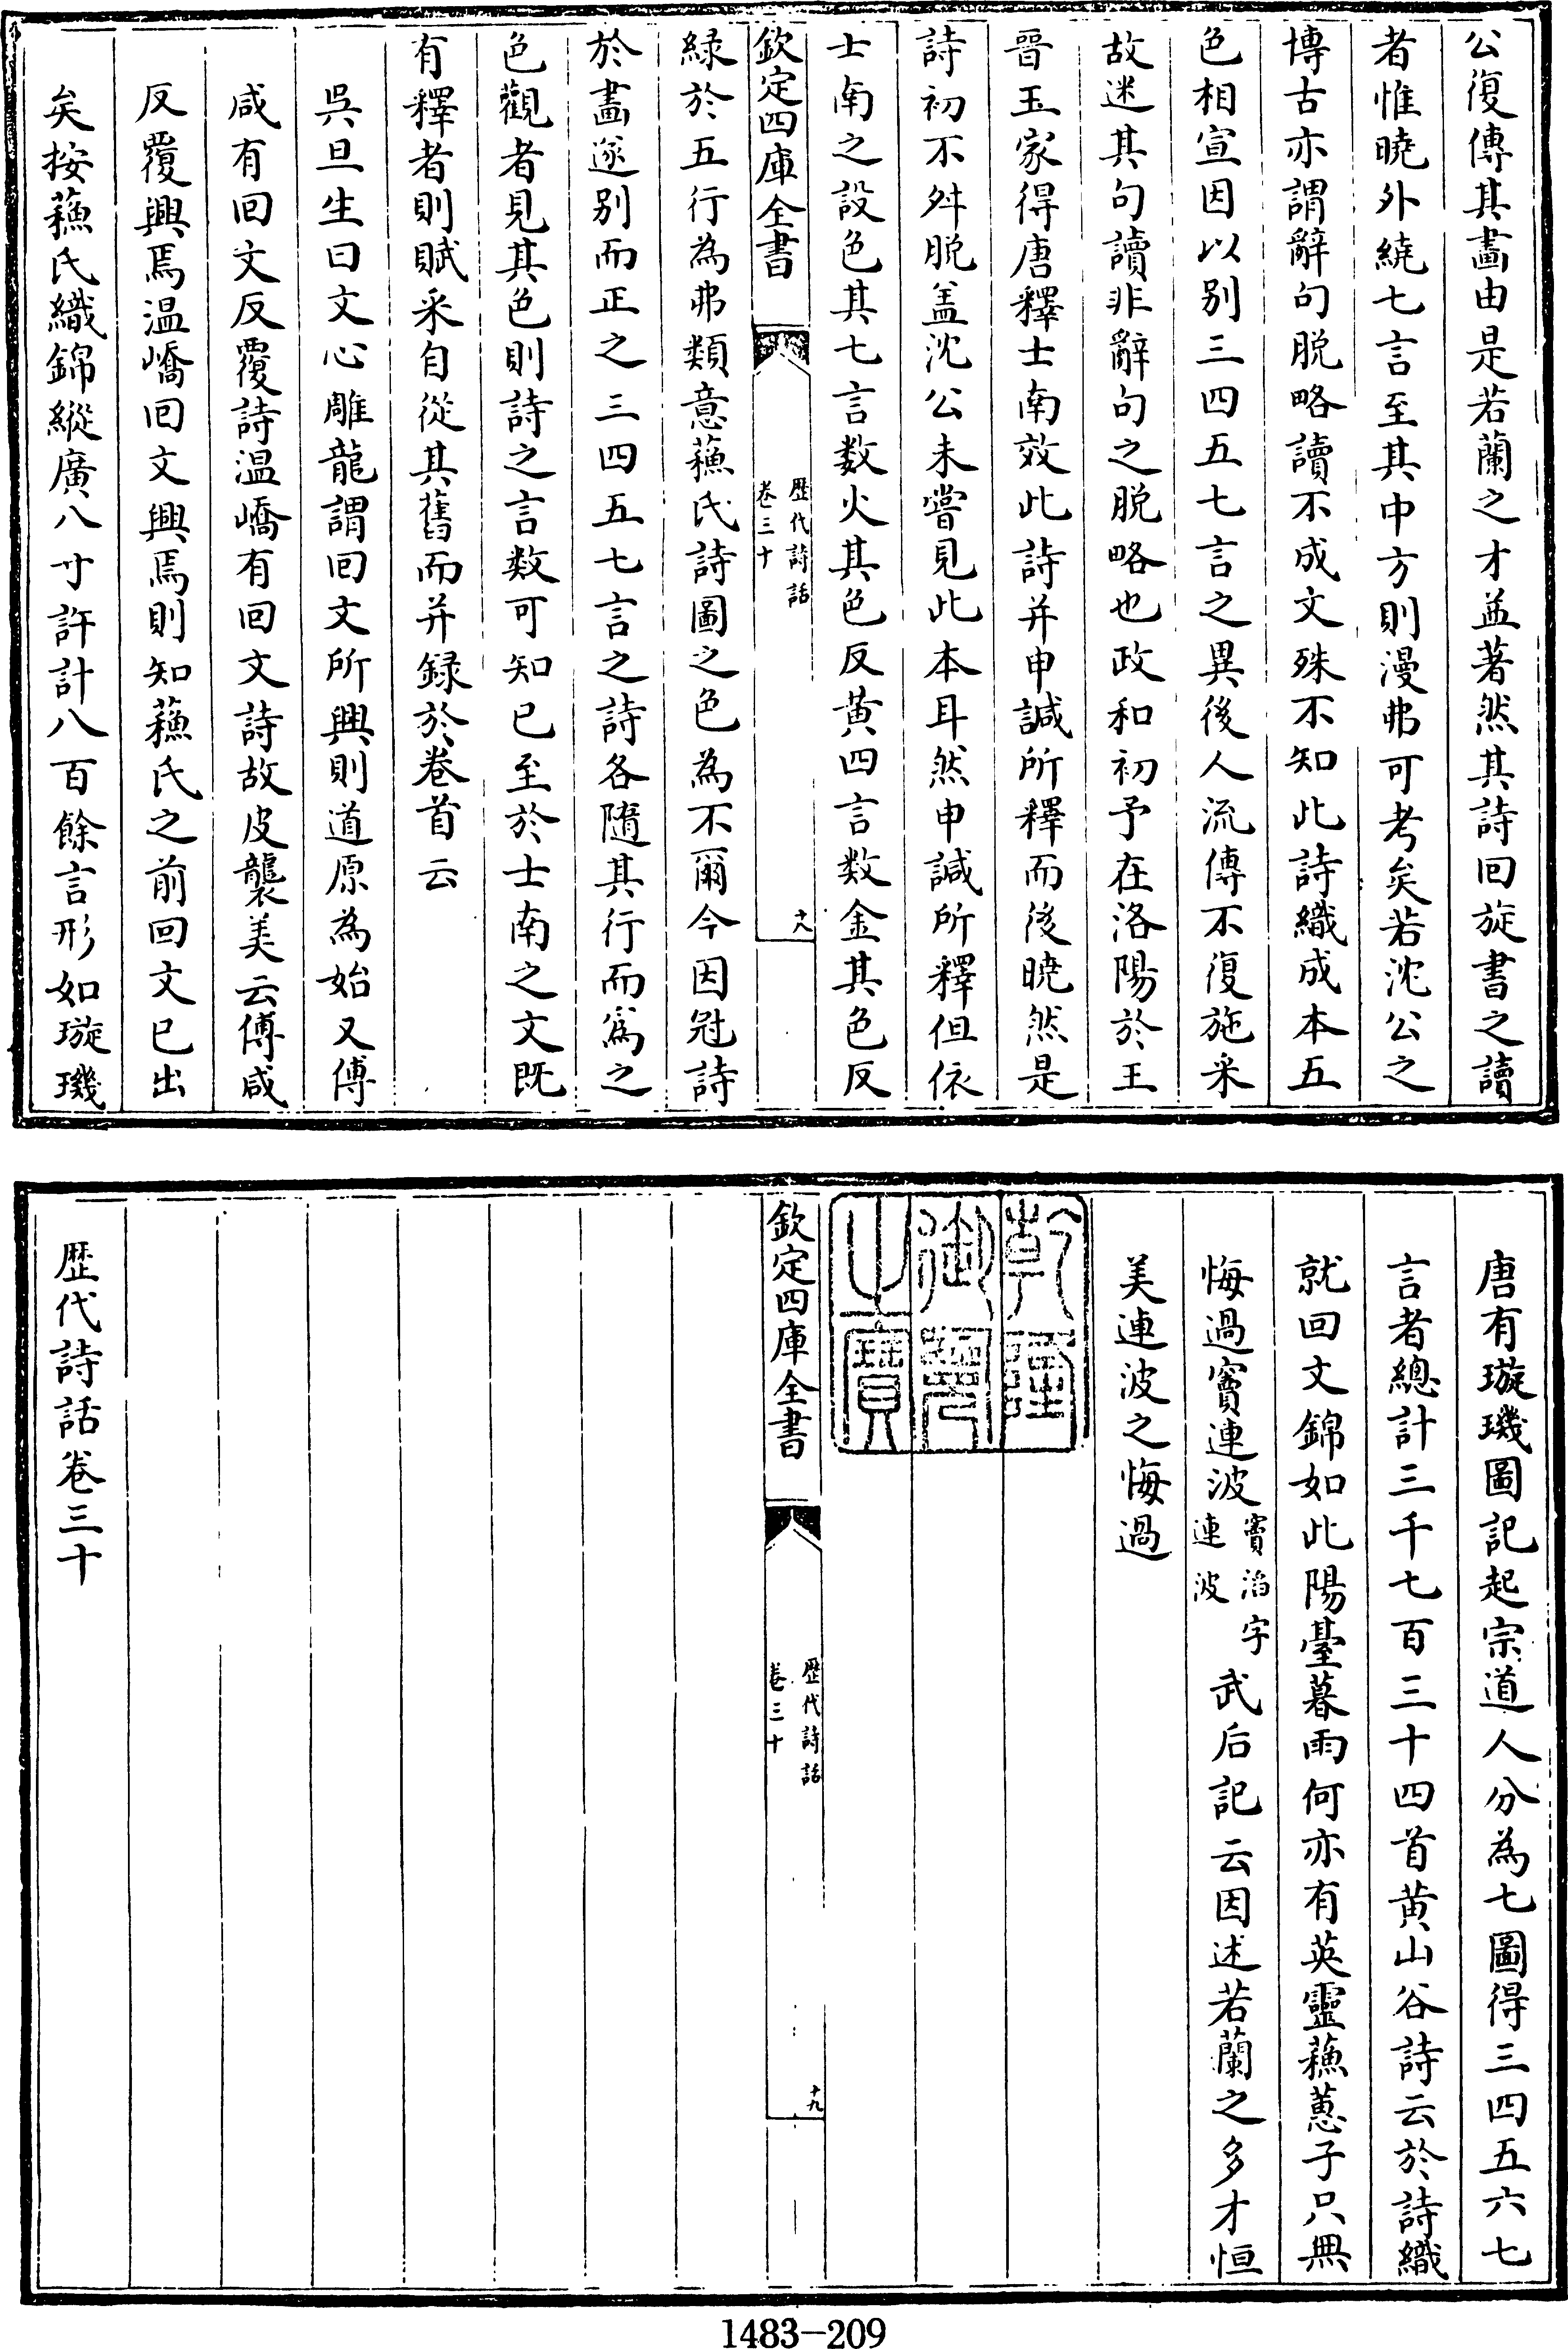 公復傳其畫由是若蘭之才益著然其詩回旋書之讀
者惟曉外繞七言至其中方則漫弗可考矣若沈公之
博古亦謂辭句脱略讀不成文殊不知此詩織成本五
色相宣因以别三四五七言之異後人流傳不復施采
故迷其句讀非辭句之脱略也政和初予在洛陽於王
晉玉家得唐釋士南效此詩并申諴所釋而後曉然是
詩初不舛脱盖沈公未嘗見此本耳然申諴所釋但依
士南之設色其七言数火其色反黄四言数金其色反
欽定四庫全書
歴代詩話
卷三十
十八
緑於五行為弗類意蘓氏詩圖之色為不爾今因冠詩
於畵遂别而正之三四五七言之詩各隨其行而為之
色觀者見其色則詩之言数可知已至於士南之文既
有釋者則賦采自從其舊而并録於卷首云
吳旦生曰文心雕龍謂回文所興則道原為始又傅
咸有回文反覆詩温嶠有回文詩故皮襲美云傅咸
反覆興焉温嶠回文興焉則知蘓氏之前回文已出
矣按蘓氏織錦縱廣八寸許計八百餘言形如璇璣
唐有璇璣圖記起宗道人分為七圖得三四五六七
言者總計三千七百三十四首黄山谷詩云於詩織
就回文錦如此陽臺暮雨何亦有英靈蘓蕙子只無
悔過竇連波竇滔字連波武后記云因述若蘭之多才恒
美連波之悔過
乾隆御覽之寶
欽定四庫全書
歴代詩話
卷三十
十九
歴代詩話卷三十
1483-209